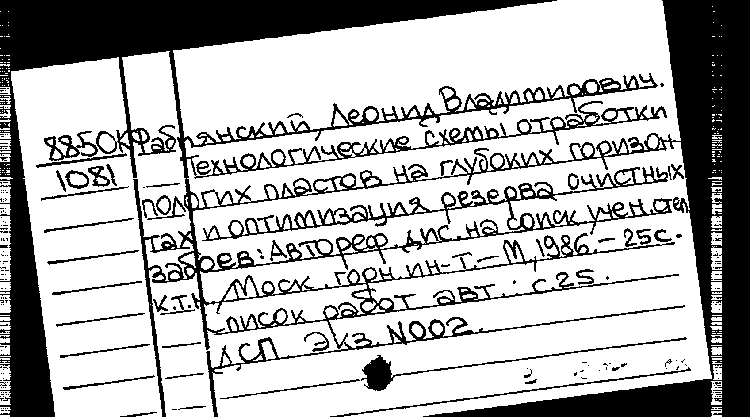 8850К Фабиянский, Леонид Владимирович.
1081 Технологические схемы отработки
пологих пластов на глубоких горизон-
тах и оптимизация резерва очистных
забоев: Автореф. дис. на соиск. учен. степ.
к.т.н. / Моск. горн. ин-т. – М, 1986. – 25 с.
Список работ авт.: с.25.
ДСП Экз. N002.